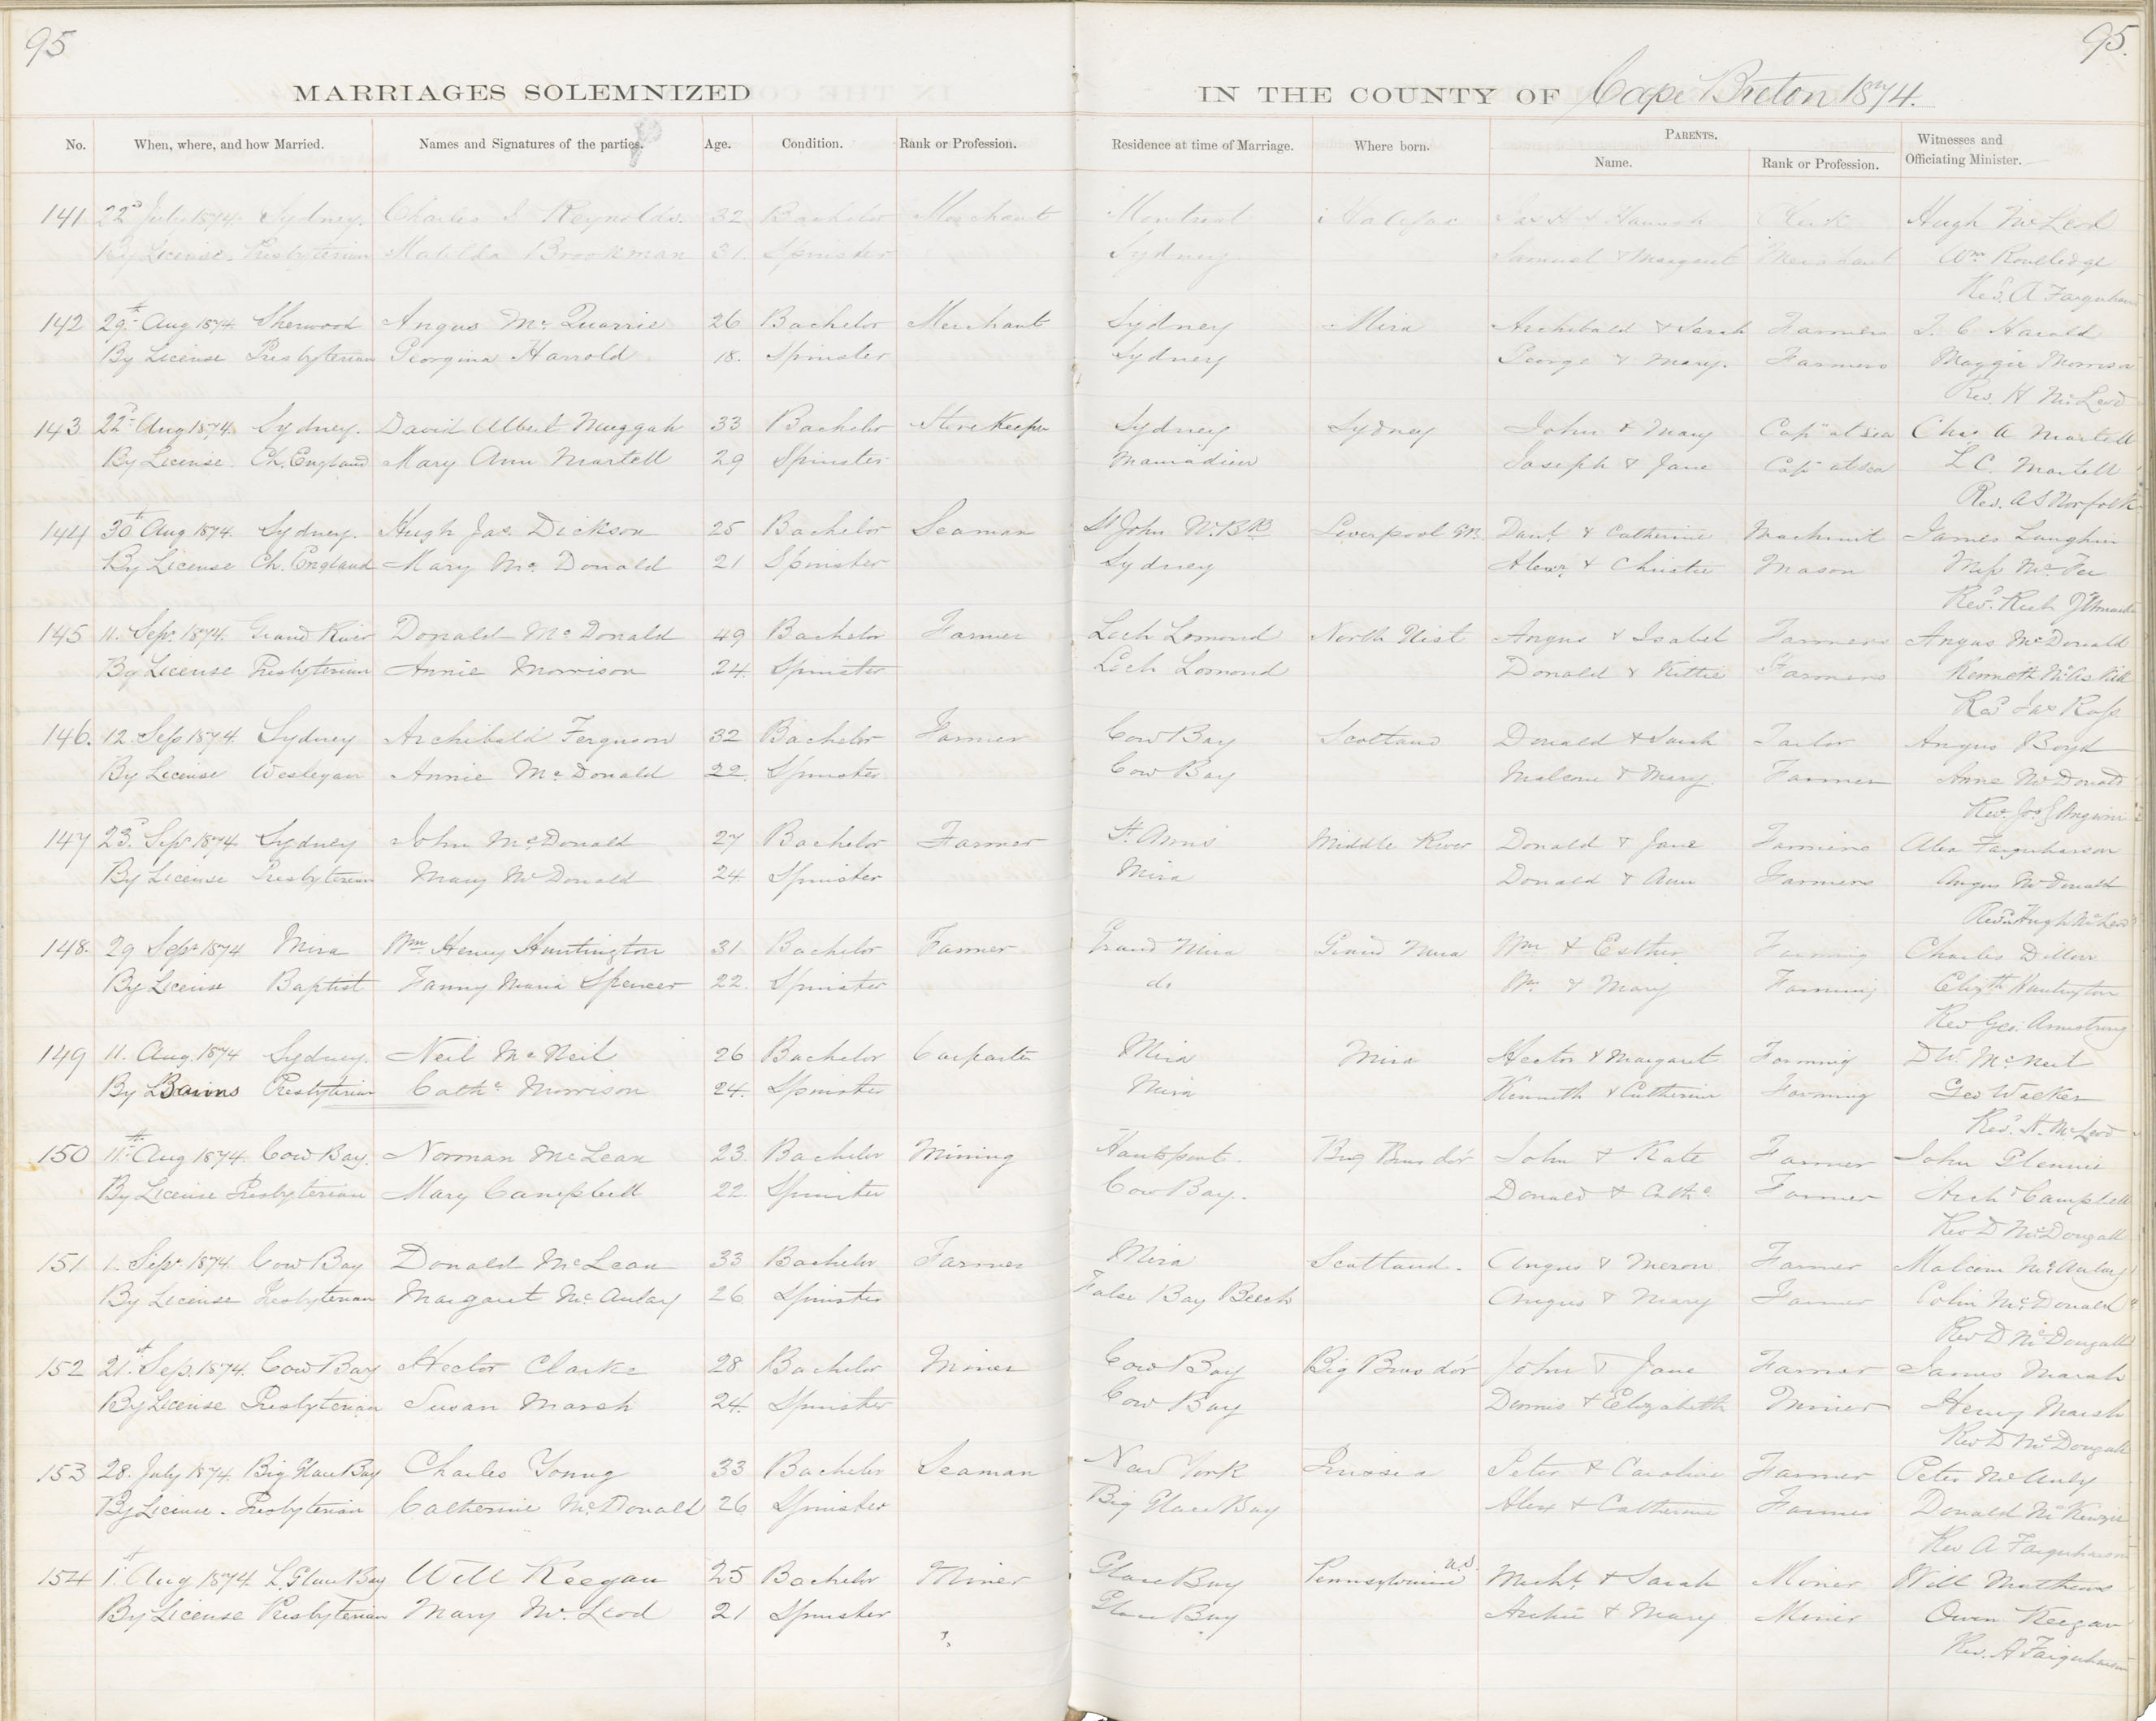 95
95.
MARRIAGES SOLEMNIZED IN THE COUNTY OF Cape Breton 1874.
No. When, where, and how Married. Names and Signatures of the parties. Age. Condition. Rank or Profession. Residence at time of Marriage. Where born. PARENTS. Name. Rank or Profession. Witnesses and Officiating Minister.
141 22d July 1874. Sydney. Charles S Reynolds. 32 Bachelor Merchant Montreal Halifax Jas H & Hannah Clerk Hugh McLeod
By License. Presbyterian Matilda Brookman 31. Spinster Sydney Samuel & Margaret Merchant Wm Routledge
Revd. A Farquharson
142 29th Aug 1874 Sherwood Angus McQuarrie 26 Bachelor Merchant Sydney Mira Archibald & Sarah Farmers T. C. Harold
By License Presbyterian Georgina Harrold 18. Spinster Sydney George & Mary. Farmers Maggie Morrison
Rev. H McLeod
143 22d Aug 1874. Sydney. David Albert Muggah 33 Bachelor Store Keeper Sydney Sydney John & Mary Capn at sea Chas A Martell
By License. Ch. England Mary Ann Martell 29 Spinster Mainadieu Joseph & Jane Capn at sea L C. Martell
Rev. A S Norfolk
144 30th Aug 1874. Sydney. Hugh Jas. Dickson 25 Bachelor Seaman St John N.B. Liverpool G.B. Danl. & Catherine Machinist James Laughlin
By License Ch. England Mary McDonald 21 Spinster Sydney Alexr & Christie Mason Miss McFee
Revd. Rich
145 11. Sepr. 1874. Grand River Donald McDonald 49 Bachelor Farmer Loch Lomond North Uist Angus & Isabel Farmers Angus McDonald
By License Presbyterian Annie Morrison 24. Spinster Loch Lomond Donald & Kittie Farmers Kenneth
Revd Jas Ross
146. 12. Sep 1874. Sydney Archibald Ferguson 32 Bachelor Farmer Cow Bay Scotland Donald & Sarah Tailor Angus Boyd
By License Wesleyan Annie McDonald 22. Spinster Cow Bay Malcom & Mary Farmer Anne McDonald
Rev. Jos G Angwin
147 23d. Sepr 1874 Sydney John McDonald 27 Bachelor Farmer St. Anns Middle River Donald & Jane Farmers Alex Farquharson
By License Presbyterian Mary McDonald 24. Spinster Mira Donald & Ann Farmers Angus McDonald
Revd. Hugh McLeod
148. 29 Sepr 1874 Mira Wm Henry Huntington 31 Bachelor Farmer Grand Mira Grand Mira Wm & Esther Farming Charles Dillon
By License Baptist Fanny Maria Spencer 22. Spinster do Wm & Mary Farming Elizth Huntington
Rev Geo. Armstrong
149 11. Aug. 1874 Sydney. Neil McNeil 26 Bachelor Carpenter Mira Mira Hector & Margaret Farming D W. McNeil
By Banns Presbyterian Cathe Morrison 24. Spinster Mira Kenneth & Catherine Farming Geo Walker
Revd. H. McLeod
150 11th Aug 1874. Cow Bay. Norman McLean 23. Bachelor Mining Hantsport. Big Bras dor John & Kate Farmer John Glennie
By License Presbyterian Mary Campbell 22 Spinster Cow Bay. Donald & Cathe Farmer Archd Campbell
Rev D McDougall
151 1. Sepr 1874 Cow Bay Donald McLean 33 Bachelor Farmer Mira Scotland. Angus & Meron Farmer Malcom McAulay
By License Presbyterian Margaret McAulay 26 Spinster False Bay Beach Angus & Mary Farmer Colin McDonald
Rev D McDougall
152 21st Sep. 1874. Cow Bay Hector Clarke 28 Bachelor Miner Cow Bay Big Bras dor John & Jane Farmer James Marsh
By License Presbyterian Susan Marsh 24. Spinster Cow Bay Dennis & Elizabeth Miner Henry Marsh
Rev D McDougall
153 28. July 1874. Big Glace Bay Charles Young 33 Bachelor Seaman New York Prussia Peter & Caroline Farmer Peter McAuly
By License. Presbyterian Catherine McDonald 26 Spinster Big Glace Bay Alex & Catherine Farmer Donald McKenzie
Rev A Farquharson
154 1st Aug 1874. L. Glace Bay Will Keegan 25 Bachelor Miner Glace Bay Pennsylvania U.S. Michl. & Sarah Miner Will Matthews
By License Presbyterian Mary McLeod 21 Spinster Glace Bay Archie & Mary Miner Owen Keegan
Rev. A Farquharson